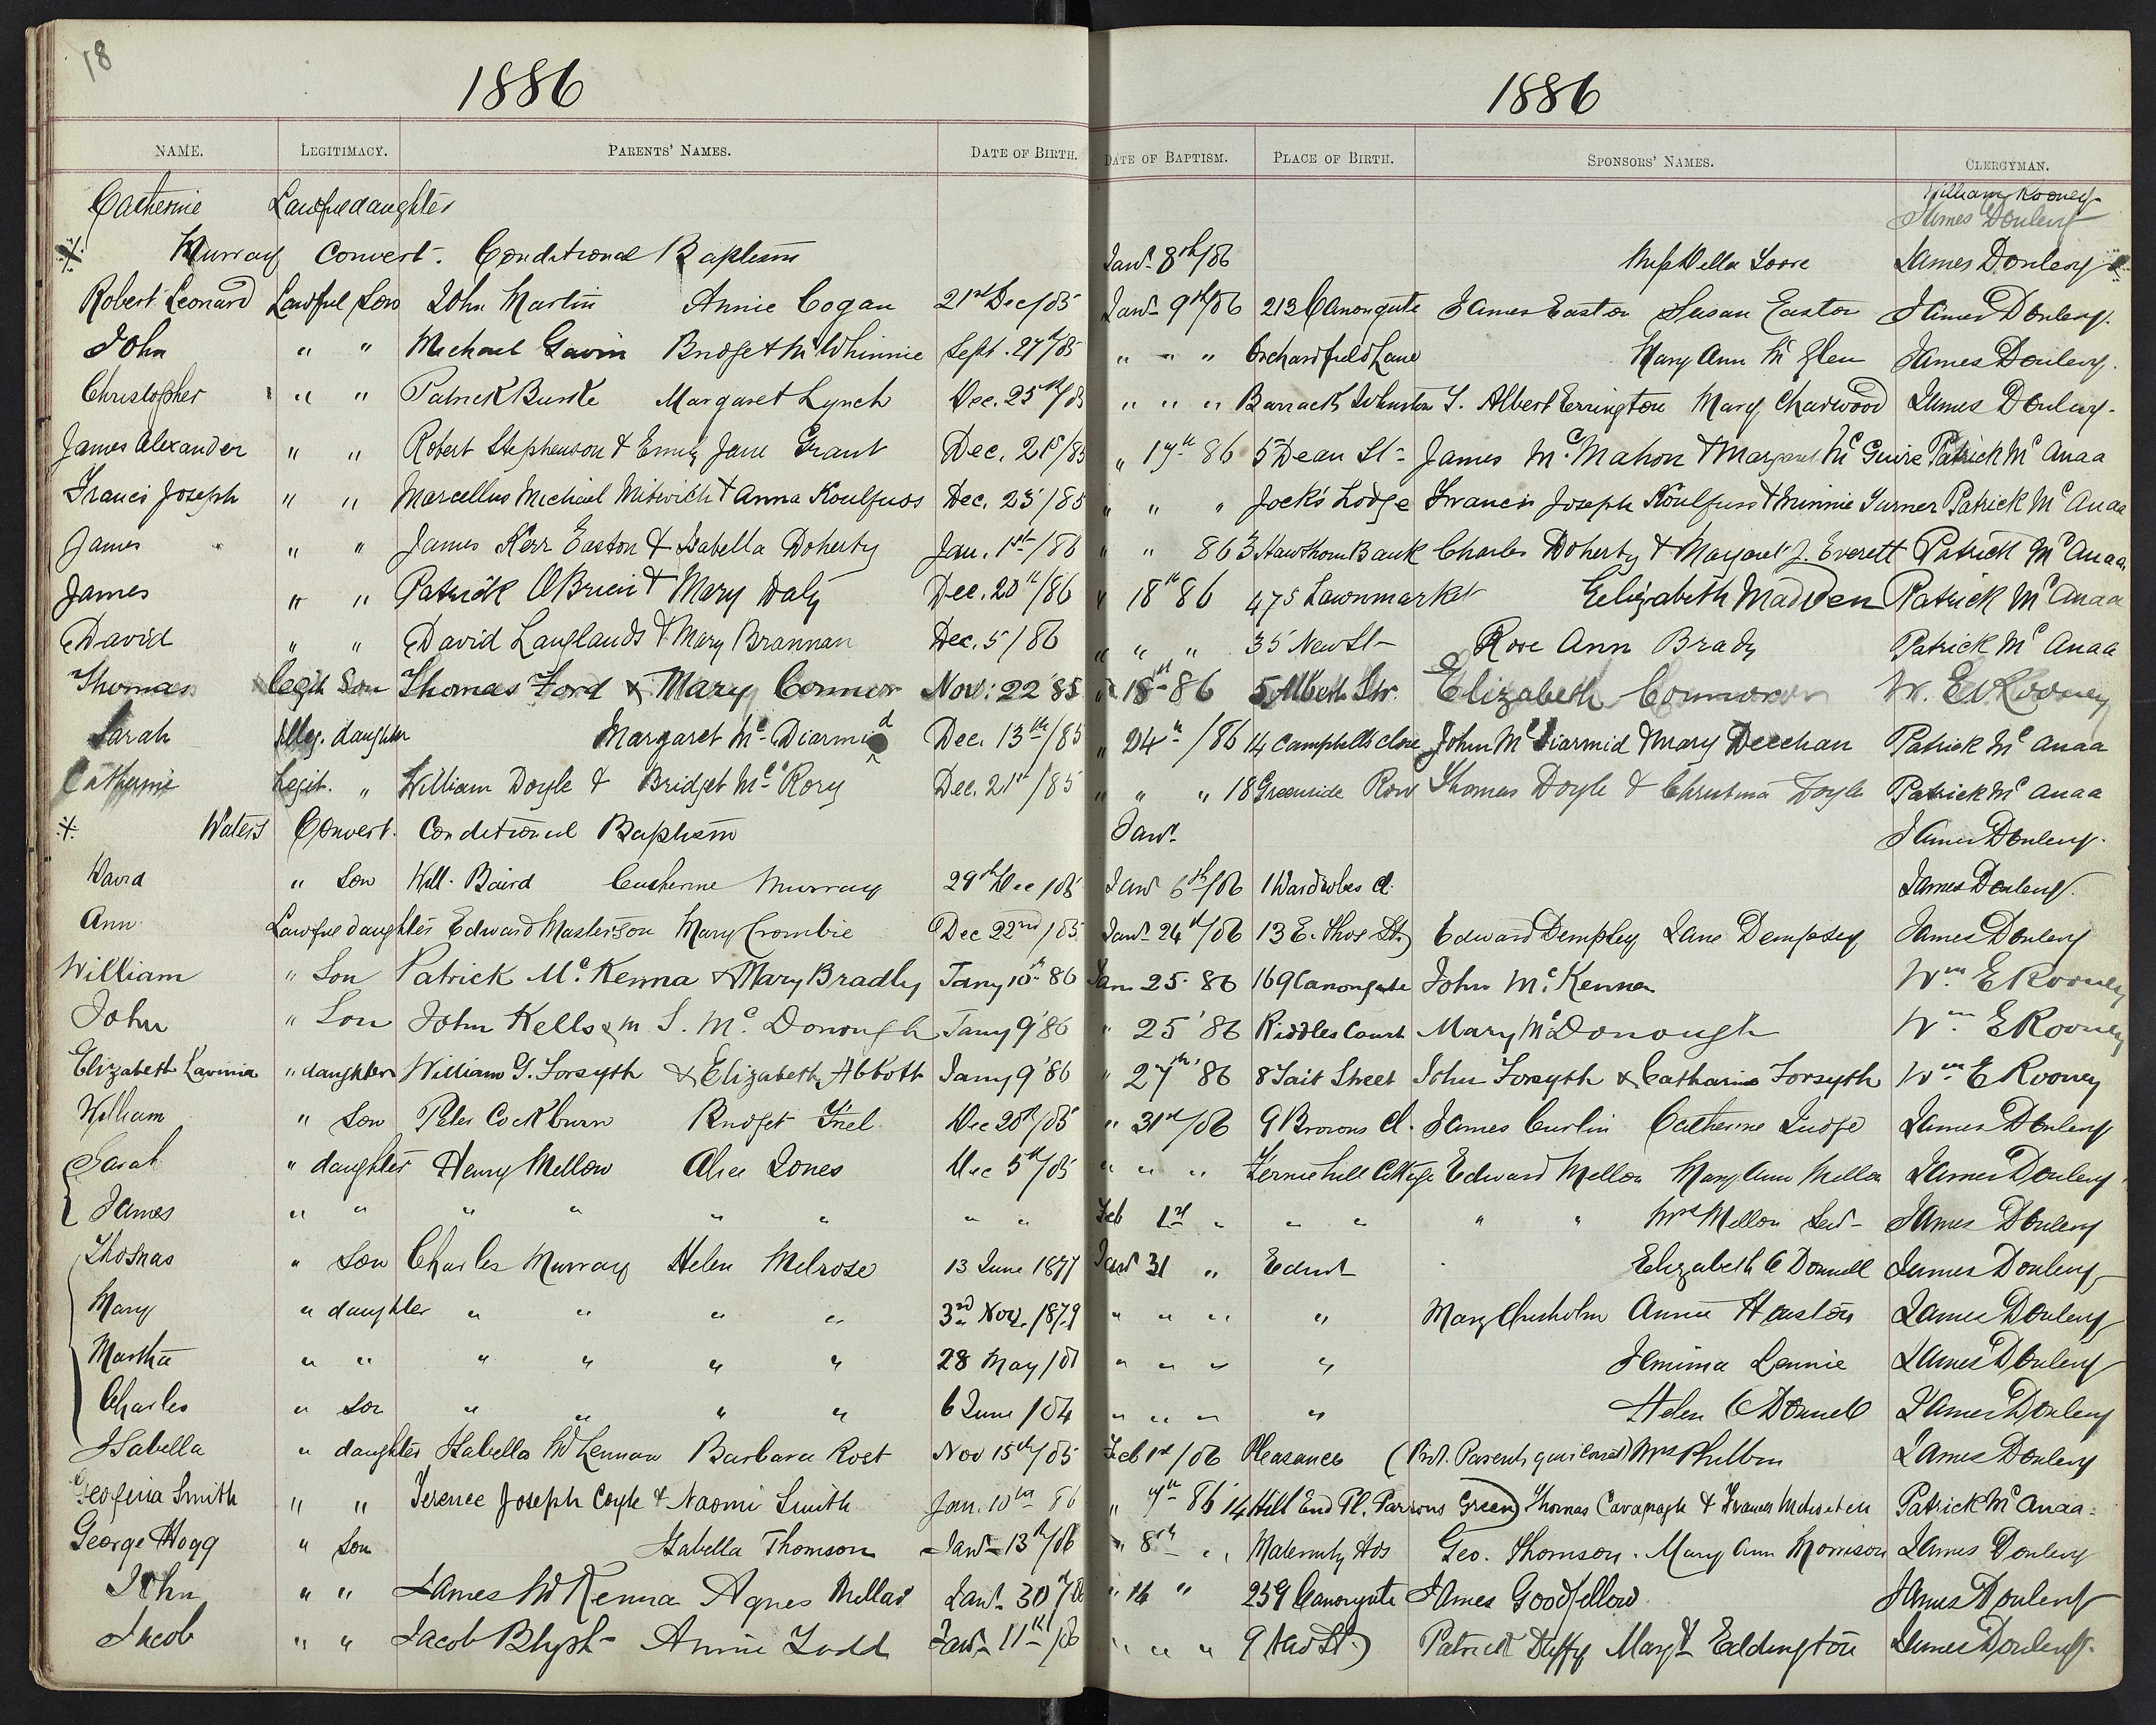 18
1886
1886
NAME. LEGITIMACY. PARENTS' NAMES. DATE OF BIRTH. DATE OF BAPTISM. PLACE OF BIRTH. SPONSORS' NAMES. CLERGYMAN.
William Rooney
Catherine Lawful daughter James Donlevy
Murray Convert. Conditional Baptism Jany 8th/86 Miss James Donlevy
Robert Leonard Lawful Son John Martin Annie Cogan 21st Dec/85 Jany 9th/86 213 Canongate James Easton Susan Easton James Donlevy.
John " " Michael Gavin Bridget McWhinnie Sept. 27th/85 " " " Orchardfield Lane Mary Ann McGlen James Donlevy.
Christopher " " Patrick Burke Margaret Lynch Dec. 25th/85 " " " Barrack Albert Errington Mary Charwood James Donlevy.
James Alexander " " Robert Stephenson & Emily Jane Grant Dec. 21st/85 " 17th 86 5 Dean St. James McMahon & Margaret McGuire Patrick McAnaa
Francis Joseph " " Marcellus Michael & Anna Koulfuos Dec. 23/85 " " " Jock's Lodge Francis Joseph & Minnie Turner Patrick McAnaa
James " " James Kerr Easton & Isabella Doherty Jan. 1st/86 " " 86 3 Hawthorn Bank Charles Doherty & Margaret J. Everett Patrick McAnaa
James " " Patrick O'Brien & Mary Daly Dec. 20th/86 " 18th 86 475 Lawnmarket Elizabeth Madden Patrick McAnaa
David " " David Langlands & Mary Brannan Dec. 5/86 " " " 35 New St Rose Ann Brady Patrick McAnaa
Thomas Legit Son Thomas Ford & Mary Connor Nov: 22 '85 " 18th 86 5 Albert Str. Elizabeth W. E. Rooney
Sarah Illeg. daughter Margaret McDiarmid Dec. 13th/85 " 24th/86 14 Campbells Close John McDiarmid & Mary Deechan Patrick McAnaa
Catherine Legit. " William Doyle & Bridget McRory Dec. 21st/85 " " " 18 Greenside Row Thomas Doyle & Christina Doyle Patrick McAnaa
Waters Convert. Conditional Baptism Jany James Donlevy.
David " Son Will. Baird Catherine Murray 29th Dec/85 Jany 6th/86 1 Wardrobes Cl. James Donlevy.
Ann Lawful daughter Edward Masterson Mary Crombie Dec 22nd/85 Jany 24th/86 13 E. Thos St. Edward Dempsey Jane Dempsey James Donlevy
William " Son Patrick McKenna & Mary Bradly Jany 10th 86 Jan 25. 86 169 Canongate John McKenna Wm E Rooney
John " Son John Kells & M. S. McDonough Jany 9 '86 " 25 '86 Riddles Court Mary McDonough Wm E Rooney
Elizabeth Lavinia " daughter William G. Forsyth & Elizabeth Abbott Jany 9 '86 " 27th '86 8 Tait Street John Forsyth & Catharine Forsyth Wm E Rooney
William " Son Peter Cockburn Bridget Friel Dec 20th/85 " 31st/86 9 Browns Cl. James Curlin Catherine Judge James Donlevy
Sarah " daughter Henry Mellon Alice Jones Dec 5th/85 " " " Ferniehill Cottage Edward Mellon Mary Ann Mellon James Donlevy
James " " " " " " " " Feb 1st " " " " " Mrs Mellon Senr James Donlevy
Thomas " Son Charles Murray Helen Melrose 13 June 1877 Jany 31 " Edinr Elizabeth O Donnell James Donlevy
Mary " daughter " " " " 3rd Nov. 1879 " " " " Mary Chisholm Annie Houston James Donlevy
Martha " " " " " " 28 May /81 " " " " Jemima Lennie James Donlevy
Charles " Son " " " " 6 June /84 " " " " Helen O Donnell James Donlevy
Isabella " daughter Isabella McLennan Barbara Nov 15th/85 Feb 1st/86 Pleasance (Prot. Parents Mrs Philbin James Donlevy
Georgina Smith " " Terence Joseph Coyle & Naomi Smith Jan. 10th 86 " 7th 86 14 Hill End Pl. Parsons Green) Thomas Cavanagh & Frances Patrick McAnaa.
George Hogg " Son Isabella Thomson Jany 13th/86 " 8th " Maternity Hos Geo. Thomson. Mary Ann Morrison James Donlevy
John " " James McKenna Agnes Millar Jany 30th/86 " 14 " 239 Canongate James Goodfellow James Donlevy
Jacob " " Jacob Blyth Annie Todd Jany 11th/86 " " " 9 New St.) Patrick Duffy Margt Eddington James Donlevy.